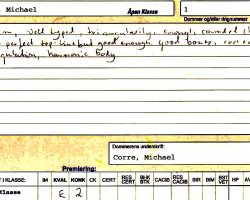 Michael Åpen Klasse 1
Dommer og/eller ringnummer
well typed, enough, rounded
perfect top-line but good enough. Good bones,
harmonic body
Dommerens underskrift:
Corre, Michael
Premiering:
I KLASSE: IM KVAL KONK CK CERT RES CERT BHK BTK CACIB RES CACIB BIR BIM BRT VET HP
klasse E 2